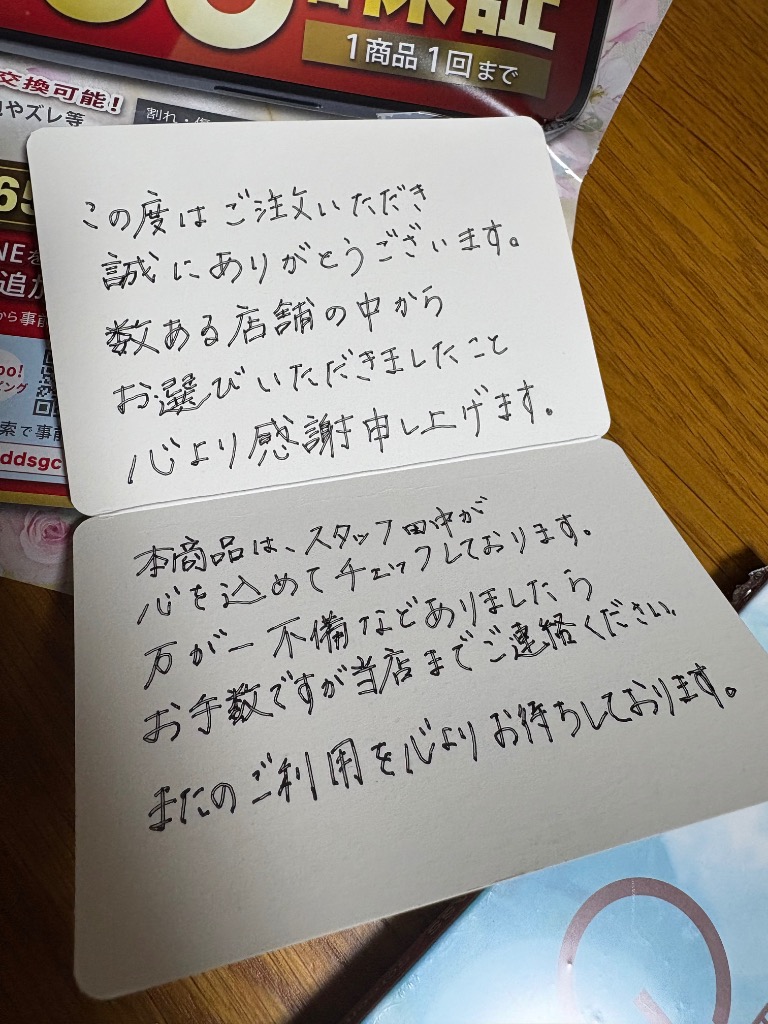 保証
1商品1回まで
交換可能!
やズレ等
割れ・
65
NEを
追加
から事前
oo!
ピング
索で事前
ddsgc
この度はご注文いただき
誠にありがとうございます。
数ある店舗の中から
お選びいただきましたこと
心より感謝申し上げます。
本商品は、スタッフ田中が
心を込めてチェックしております。
万が一不備などありましたら
お手数ですが当店までご連絡ください。
またのご利用を心よりお待ちしております。